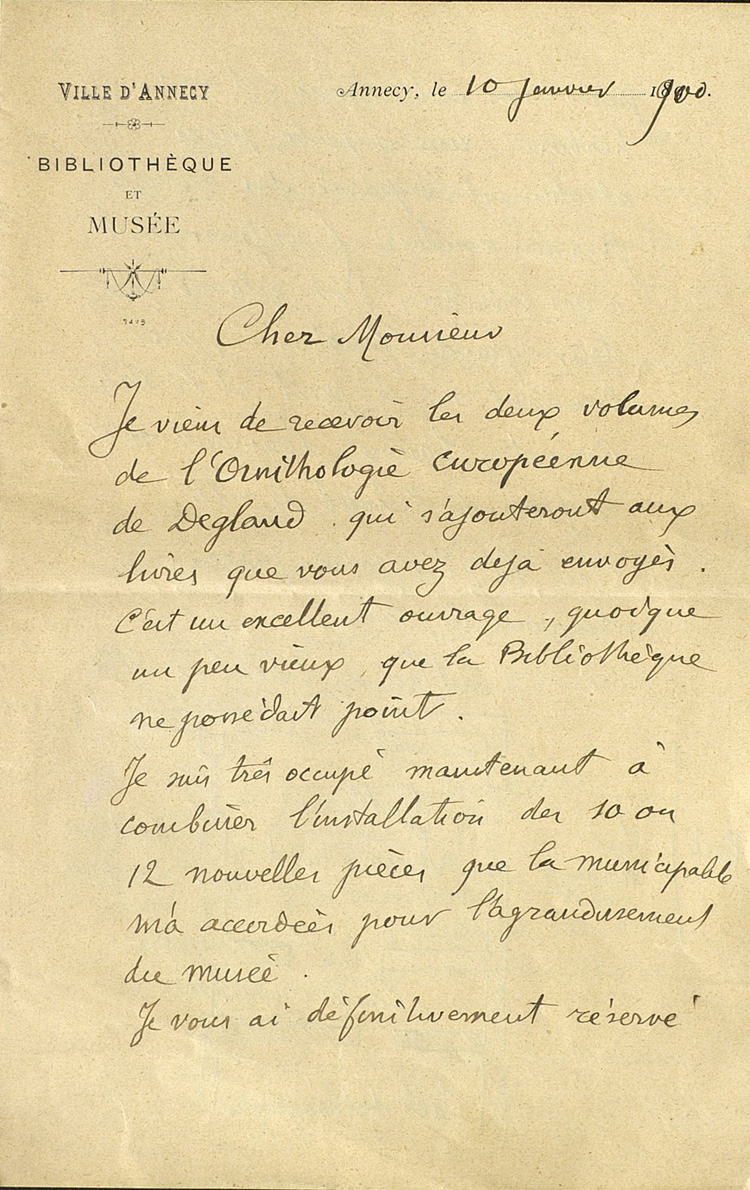 VILLE D'ANNECY
BIBLIOTHÈQUE
ET
MUSÉE
Annecy, le 10 Janvier 1900.
Cher Monsieur
Je viens de recevoir les deux volumes
de l'Ornithologie européenne
de Degland qui s'ajouteront aux
livres que vous avez déjà envoyés.
C'est un excellent ouvrage, quoique
un peu vieux, que la Bibliothèque
ne possédait point.
Je suis très occupé maintenant à
combiner l'installation des 10 ou
12 nouvelles pièces que la municipalité
m'a accordées pour l'agrandissement
du musée.
Je vous ai définitivement réservé